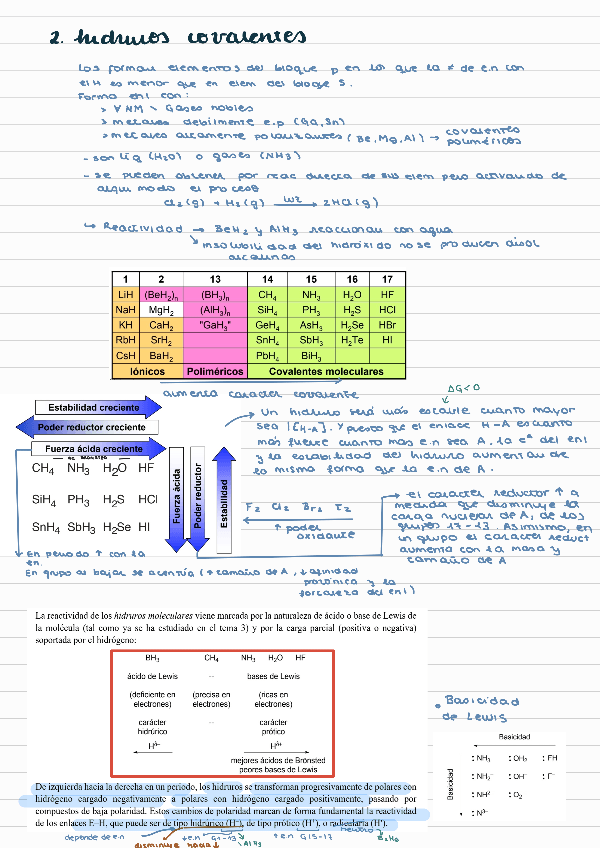 2. hidruros covalentes
Los forman elementos del bloque p en los que la ≠ de e.n con
el H es menor que en elem del bloque s.
Forma enl con:
> ∀ NM \ Gases nobles
> metales debilmente e.p (Ga,Sn)
> metales altamente polarizantes (Be,Mg,Al) → covalentes
poliméricos
- son líq (H₂O) o gases (NH₃)
- se pueden obtener por reac directa de sus elem pero activando de
algún modo el proceso
Cl₂(g) + H₂(g) → 2HCl(g)
↳ Reactividad → BeH₂ y AlH₃ reaccionan con agua
↘ insolubilidad del hidróxido no se producen disol
alcalinas
1 2 13 14 15 16 17
LiH (BeH₂)ₙ (BH₃)ₙ CH₄ NH₃ H₂O HF
NaH MgH₂ (AlH₃)ₙ SiH₄ PH₃ H₂S HCl
KH CaH₂ "GaH₃" GeH₄ AsH₃ H₂Se HBr
RbH SrH₂ SnH₄ SbH₃ H₂Te HI
CsH BaH₂ PbH₄ BiH₃
Iónicos Poliméricos Covalentes moleculares
aumenta caracter covalente
ΔG<0
Estabilidad creciente
Poder reductor creciente
Fuerza ácida creciente
CH₄ NH₃ H₂O HF
SiH₄ PH₃ H₂S HCl
SnH₄ SbH₃ H₂Se HI
Fuerza ácida
Poder reductor
Estabilidad
→ Un hidruro será más estable cuanto mayor
sea |E H-A|. Y puesto que el enlace H-A es cuanto
más fuerte cuanto mas e.n sea A. la eᵃ del enl
y la estabilidad del hidruro aumentan de
la misma forma que la e.n de A.
F₂ Cl₂ Br₂ I₂
↑ poder
oxidante
→ el carácter reductor ↑ a
medida que disminuye la
carga nuclear de A, de los
grupos 17-13. Asimismo, en
un grupo el caracter reduct
aumenta con la masa y
tamaño de A
En periodo ↑ con la
en.
En grupo al bajar se acentúa (↑ tamaño de A, ↓ afinidad
protónica y la
fortaleza del enl)
La reactividad de los hidruros moleculares viene marcada por la naturaleza de ácido o base de Lewis de
la molécula (tal como ya se ha estudiado en el tema 3) y por la carga parcial (positiva o negativa)
soportada por el hidrógeno:
BH₃ CH₄ NH₃ H₂O HF
ácido de Lewis -- bases de Lewis
(deficiente en electrones) (precisa en electrones) (ricas en electrones)
carácter hidrúrico -- carácter prótico
Hᵟ⁻ Hᵟ⁺
mejores ácidos de Brönsted
peores bases de Lewis
. Basicidad
de Lewis
Basicidad
Basicidad
:NH₃ :OH₂ :FH
:NH₂⁻ :OH⁻ :F⁻
:NH²⁻ :O₂
:N³⁻
De izquierda hacia la derecha en un periodo, los hidruros se transforman progresivamente de polares con
hidrógeno cargado negativamente a polares con hidrógeno cargado positivamente, pasando por
compuestos de baja polaridad. Estos cambios de polaridad marcan de forma fundamental la reactividad
de los enlaces E–H, que puede ser de tipo hidrúrico (H⁻), de tipo prótico (H⁺), o radicalaria (H·).
depende de e.n ↓e.n G1-13 ↑e.n G15-17 neutro B₂H₆
disminuye hacia ↓ AlH₃